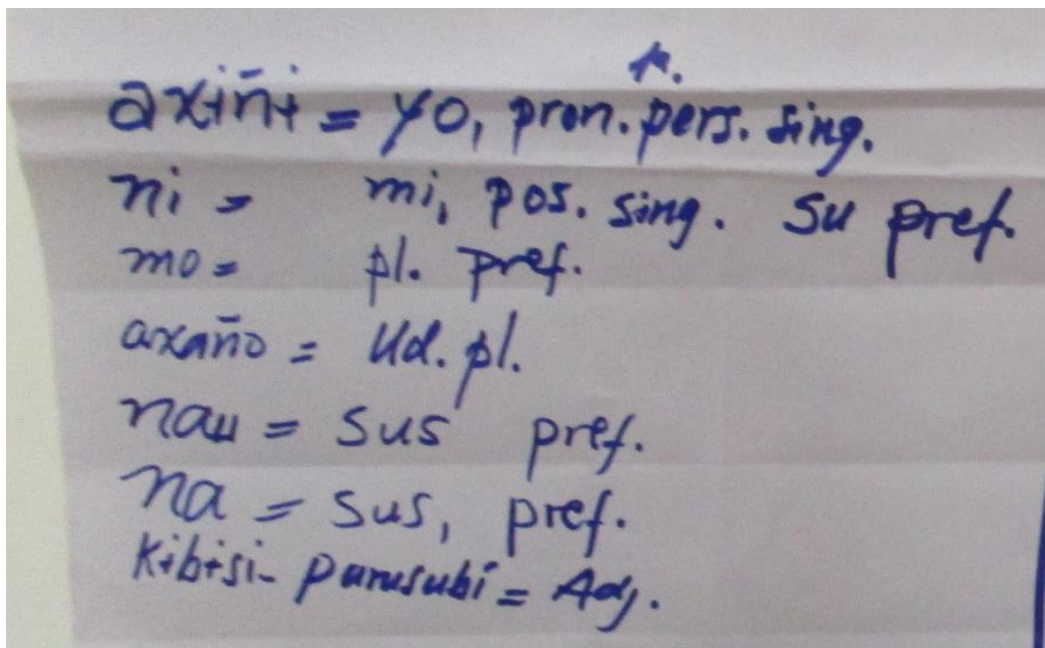 axɨñɨ = yo, pron. pers. sing.
ni = mi, pos. sing. su pref.
mo = pl. pref.
axaño = Ud. pl.
nau = sus pref.
na = sus, pref.
Kɨbɨsi- purusubi = Adj.